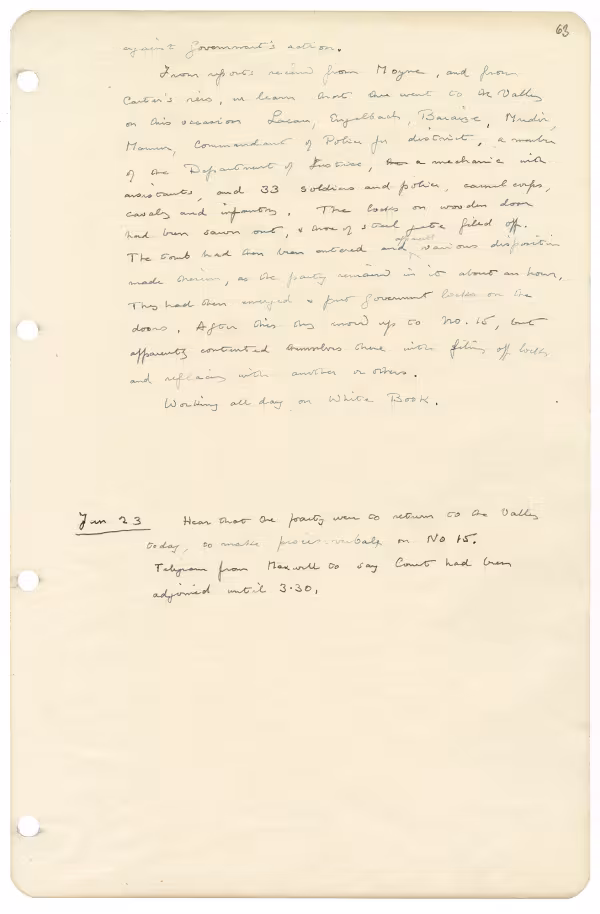 63
against Government's action.
From reports received from Moyne, and from
Carter's reis, we learn that there went to the Valley
on this occasion Lacau, Engelbach, Baraize, Mudir,
Mamur, Commandant of Police for district, a member
of the Department of Justice, a mechanic with
assistants, and 33 soldiers and police, camel corps,
cavalry and infantry. The locks on wooden door
had been sawn out, & those of steel gate filed off.
The tomb had then been entered and apparently various disposition
made therein, as the party remained in it about an hour.
They had then emerged & put government locks on the
doors. After this they moved up to No. 15, but
apparently contented themselves there with filing off locks
and replacing with another or others.
Working all day on White Book.
Jan 23 Hear that the party were to return to the Valley
today, to make procès-verbals on No 15.
Telegram from Maxwell to say Court had been
adjourned until 3.30.